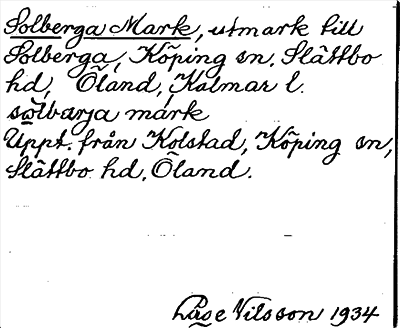 Solberga Mark, utmark till
Solberga, Köping sn, Slättbo
hd, Öland, Kalmar l.
sölbarja márk
Uppt. från Kolstad, Köping sn,
Slättbo hd, Öland.
Låse Nilsson 1934